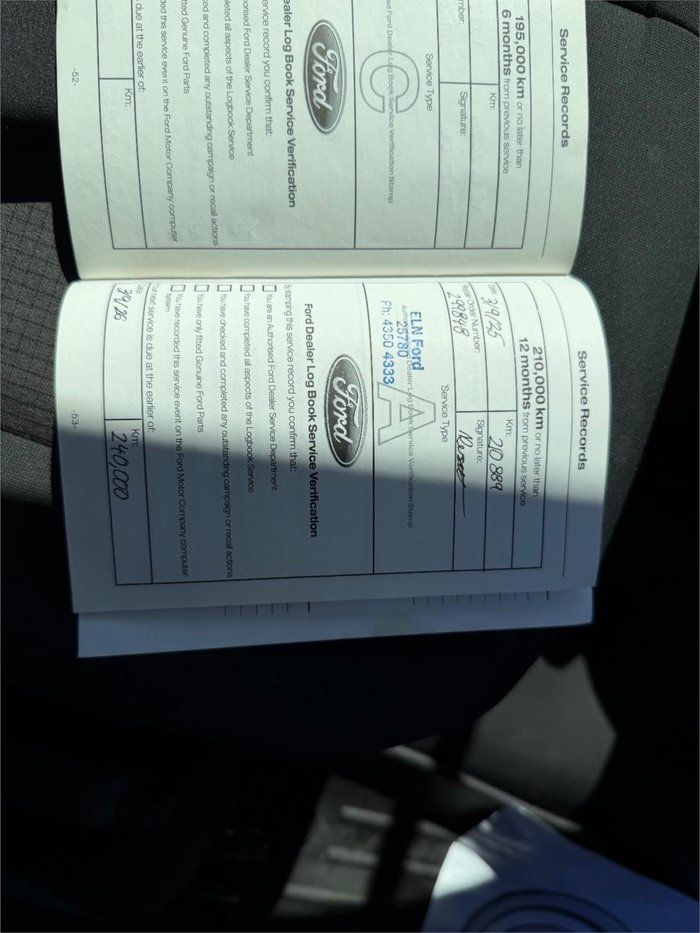 Service Records
195,000 km or no later than
6 months from previous service
Km:
Signature:
Service Type
C
Ford Dealer Log Book Service Verification Stamp
Ford
ealer Log Book Service Verification
ervice record you confirm that:
orised Ford Dealer Service Department
leted all aspects of the Logbook Service
ked and completed any outstanding campaign or recall actions
tted Genuine Ford Parts
ded this service event on the Ford Motor Company computer
due at the earlier of:
Km:
-52-
Service Records
210,000 km or no later than
12 months from previous service
Date:
3/9/25
Km:
210 889
Repair Order Number:
Signature:
Service Type
A
Dealer Log Book Service Verification Stamp
ELN Ford
25780
Ph: 4350 4333
Ford
Ford Dealer Log Book Service Verification
By stamping this service record you confirm that:
You are an Authorised Ford Dealer Service Department
You have completed all aspects of the Logbook Service
You have checked and completed any outstanding campaign or recall actions
You have only fitted Genuine Ford Parts
You have recorded this service event on the Ford Motor Company computer
system
next service is due at the earlier of:
3/9/26
Km:
240,000
-53-